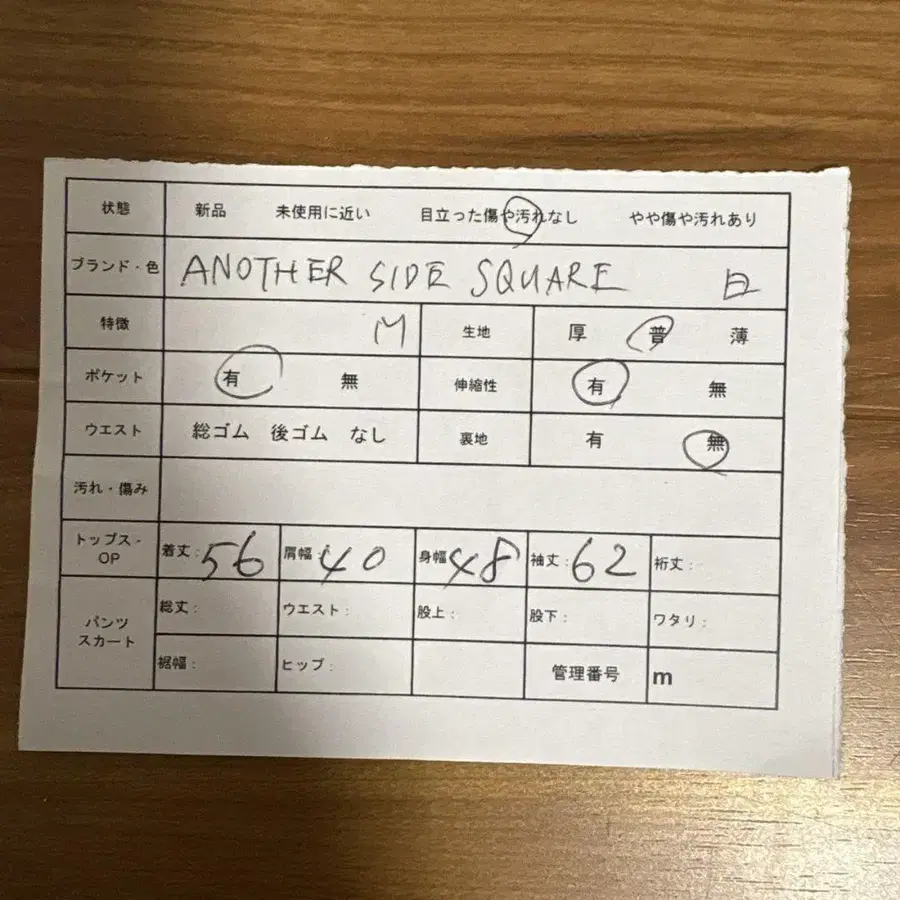 状態 新品 未使用に近い 目立った傷や汚れなし やや傷や汚れあり
ブランド・色 ANOTHER SIDE SQUARE
特徴 M 生地 厚 普 薄
ポケット 有 無 伸縮性 有 無
ウエスト 総ゴム 後ゴム なし 裏地 有 無
汚れ・傷み
トップス・OP 着丈:56 肩幅:40 身幅:48 袖丈:62 裄丈:
パンツ スカート 総丈: ウエスト: 股上: 股下: ワタリ:
裾幅: ヒップ: 管理番号 m